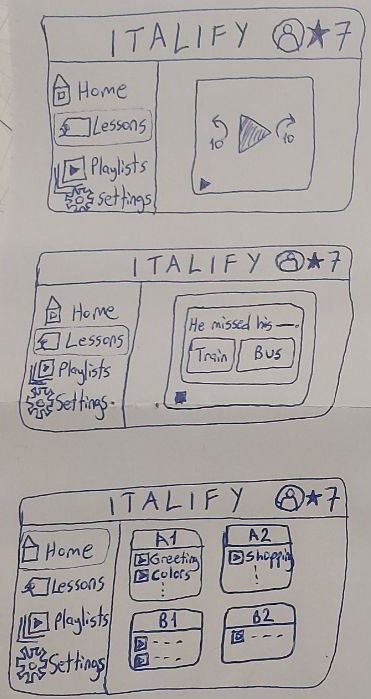 ITALIFY ★7
Home
Lessons
10 10
Playlists
Settings
ITALIFY ★7
Home
Lessons
Playlists
Settings
He missed his —.
Train Bus
ITALIFY ★7
Home
Lessons
Playlists
Settings
A1
Greeting
Colors
A2
Shopping
B1
B2